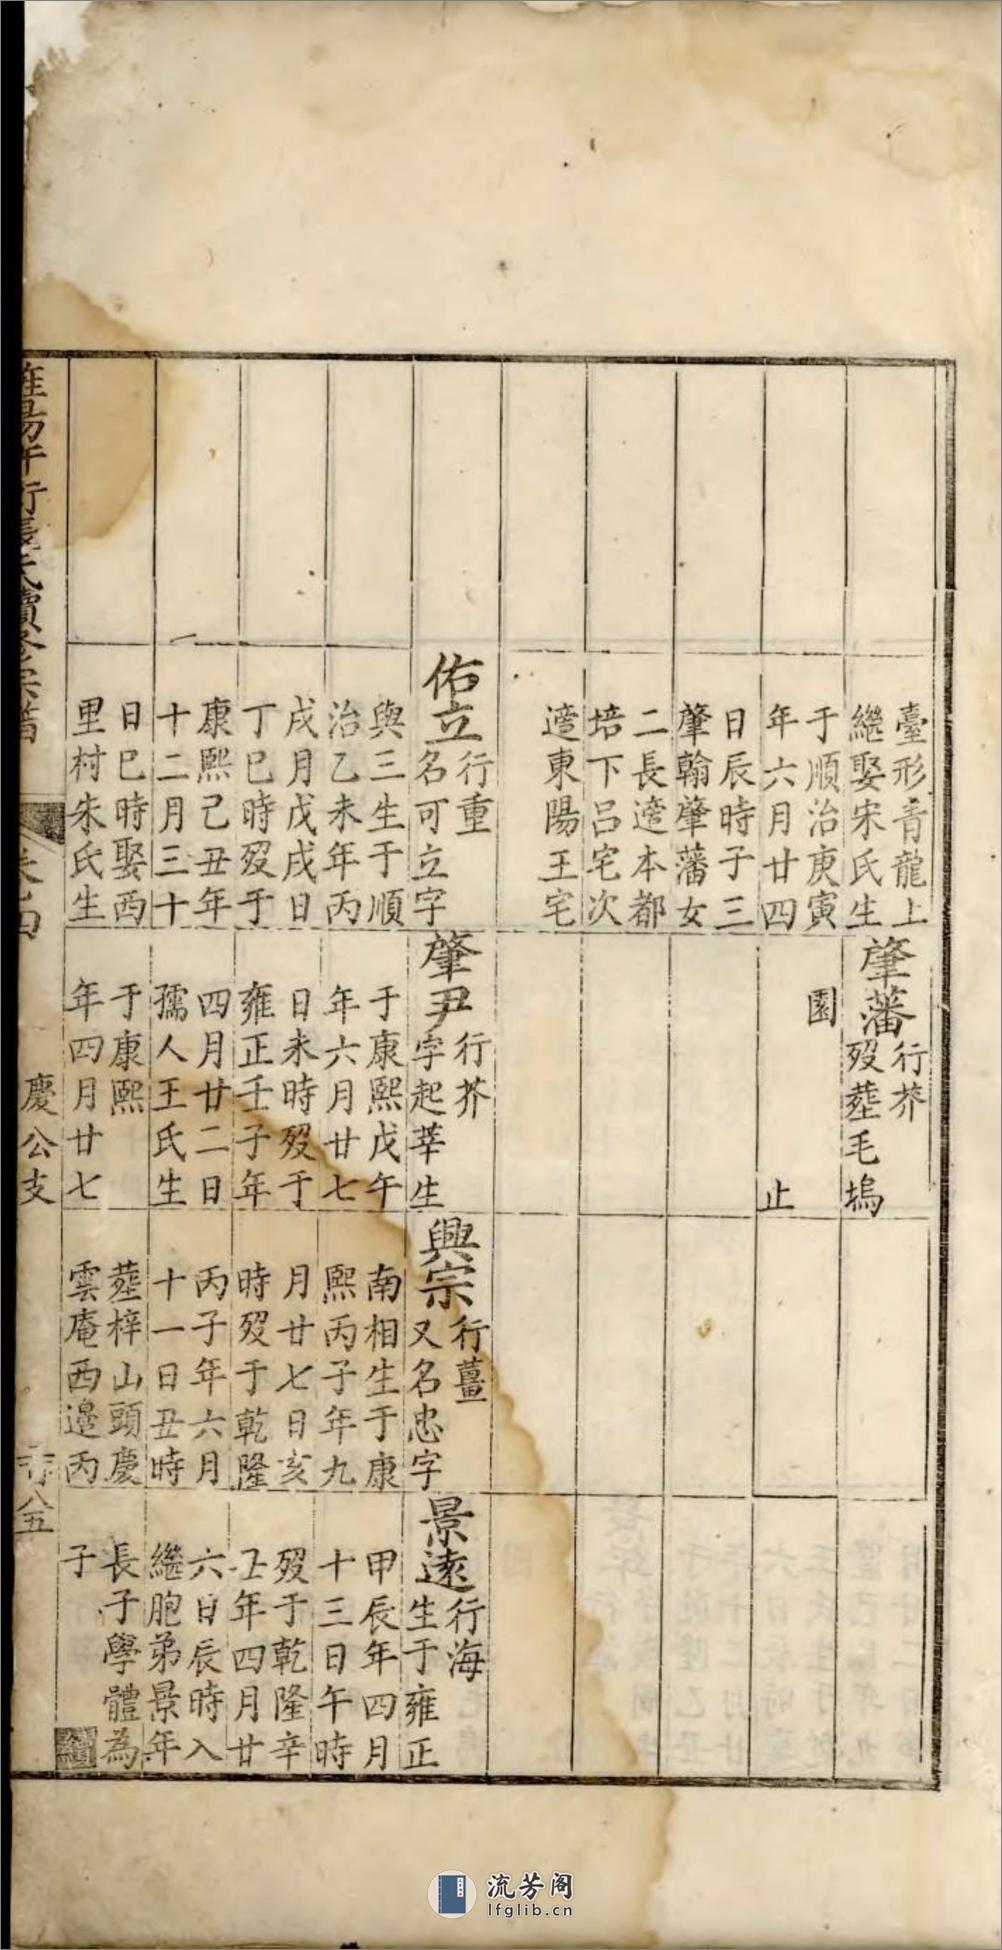 臺形青龍上
繼娶宋氏生
于順治庚寅
年六月廿四
日辰時子三
肇翰肇藩女
二長適本都
培下呂宅次
適東陽王宅
佑立
行重
名可立字
與三生于順
治乙未年丙
戌月戊戌日
丁巳時歿于
康熙己丑年
十二月三十
日巳時娶西
里村朱氏生
肇藩
行芥
歿葬毛塢
園
止
肇尹
行芥
字起莘生
于康熙戊午
年六月廿七
日未時歿于
雍正壬子年
四月廿二日
孺人王氏生
于康熙
年四月廿七
興宗
行薑
又名忠字
南相生于康
熙丙子年九
月廿七日亥
時歿于乾隆
丙子年六月
十一日丑時
葬梓山頭慶
雲庵西邊丙
景遠
行海
生于雍正
甲辰年四月
十三日午時
歿于乾隆辛
年四月廿
六日辰時入
繼胞弟景年
長子學體為
子
續
行張氏續修宗譜
卷之四
慶公支
八五
流芳阁
lfglib.cn